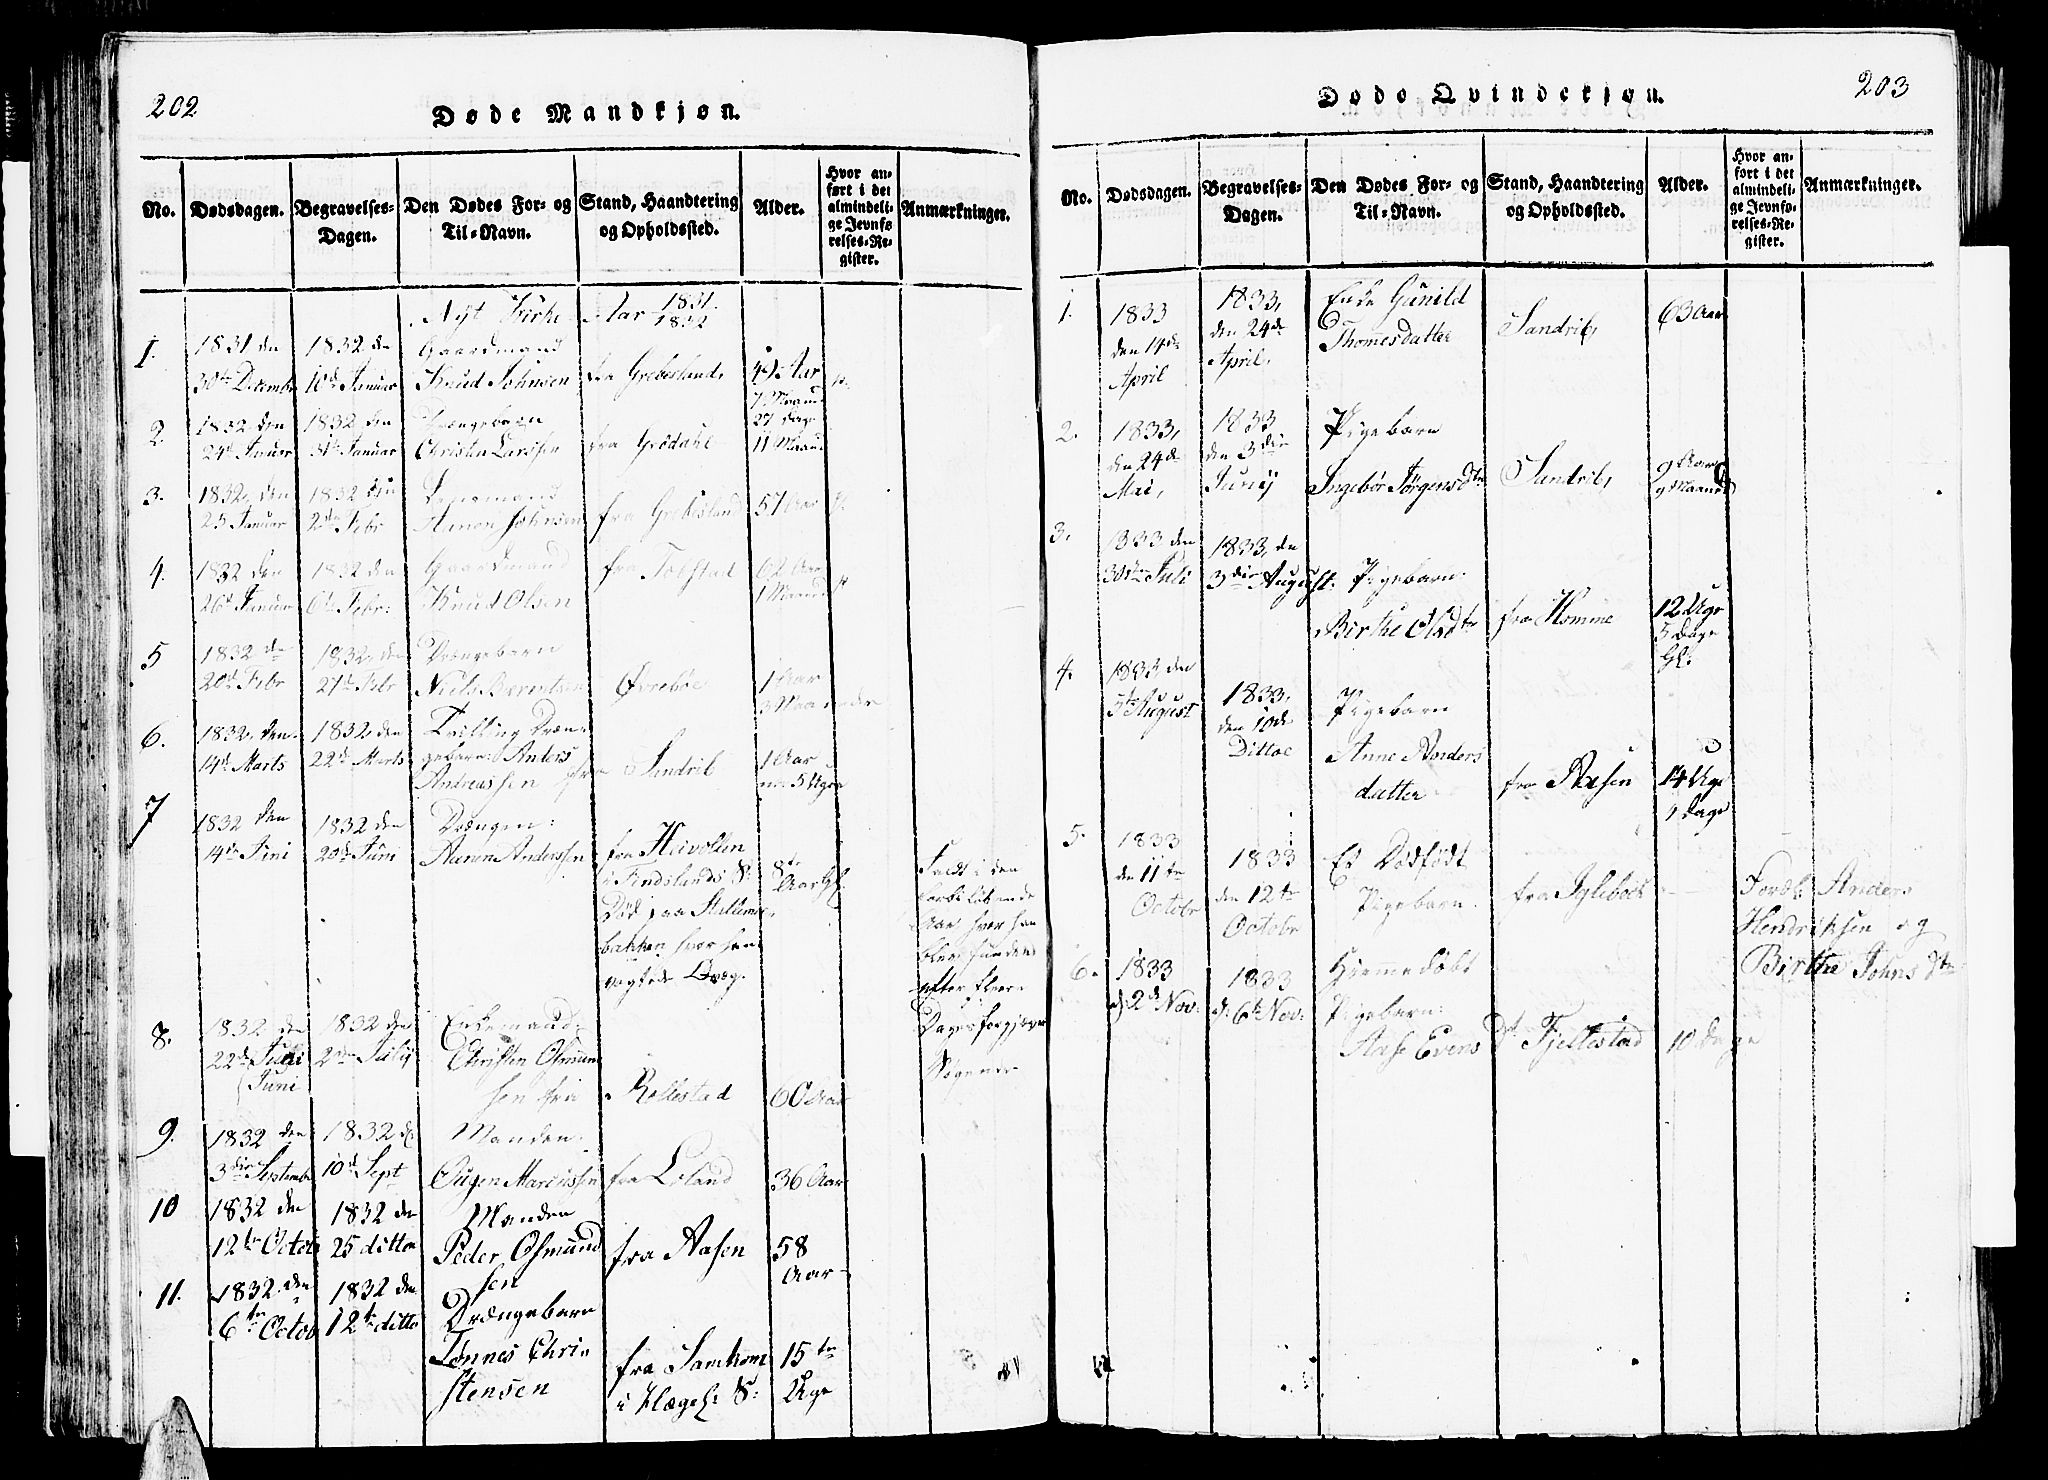 202
Døde Mandkjøn.
No.
Dødsdagen.
Begravelses-
Dagen.
Den Dødes For- og
Til-Navn.
Stand, Haandtering
og Opholdssted.
Alder.
Hvor an-
ført i det
almindeli-
ge Jevnfø-
relses-Re-
gister.
Anmærkninger.
Nyt Kirke Aar 1831.
1832
1.
1831 den
30te Decembr
1832 den
10de Januar
Gaardmand
Knud Johnsen
fra Grebesland,
49 Aar
7 Maan
27 Dage
2
1832 den
24de Januar
1832 den
31te Januar
Drængebarn
Christen Larssen
fra Grødahl
11 Maan
3.
1832, den
25 Januar
1832 den
2den Febr
Aanon Johnsen
fra Grebesland
57 Aar
4.
1832 den
26de Januar
1832 den
6te Febr:
Gaardmand
Knud Olsen
fra Tobstad
62 Aar
1 Maaned
5
1832 den
20de Febr
1832, den
27de Febr
Drængebarn
Niels Berentsen
Øvrebøe
1 Aar
3 Maaneder
6.
1832, den
14de Marts
1832, den
22de Marts
Tvilling Dræn-
gebarn: Anders
Andreassen fra
Sandrib
1 Aar
5 Uger
7
1832 den
14de Juni
1832 den
20de Juni
Drængen:
Aanon Anderssen
fra Heivollen
i Findslands S:
Død paa Stallemo-
bakken hvor han
vogtede Qvæg.
8te
Aar Gl.
Faldt i den
forbi løbende
Aae hvor han
blev funden
efter fleere
Dages forgjæves
Søgende
8.
1832 den
22de Julji
Juni
1832 den
2den Julij
Enkemand:
Christen Osmund
sen fra
Røllestad
60 Aar
9.
1832 den
3die Septembr
1832 d:
10de Sept
Manden:
Augen Marcussen
fra Loland
36 Aar
10
1832 den
12te Octob
1832 den
25 ditto
Manden
Peder Osmund
sen
fra Aasen
58
Aar
11.
1832 den
6te Octob
1832 den
12te ditto
Drængebarn
Tønnes Chri
stensen
fra Samkom
i Hægel: S:
15ten
Uge
Døde Qvindekjøn.
203
No.
Dødsdagen.
Begravelses-
Dagen.
Den Dødes For- og
Til-Navn.
Stand, Haandtering
og Opholdssted.
Alder.
Hvor an-
ført i det
almindeli-
ge Jevnfø-
relses-Re-
gister.
Anmærkninger.
1.
1833
den 14de
April
1833,
den 24de
April,
Enke Gunild
Thomesdatter
Sandrib,
63 Aar
2.
1833,
den 24de
Mai,
1833
den 3die
Junij
Pigebarn
Ingebor Jørgensdtr
Sandrib,
9 Maaned
3.
1833 den
30te Juli
1833, den
3die August.
Pigebarn:
Birthe Olsdtr
fra Homme
12 Uger
5 Dage
Gl.
4.
1833 den
5te August
1833,
den 10de
Dittoe
Pigebarn
Anne Anders
datter
fra Aasen
14 Uge
4 Dage
5.
1833
den 11te
Octobr
1833
den 12te
Octobr
Et Dødfødt
Pigebarn.
fra Iglebæk
Foræld: Anders
Hendriksen og
Birthe Johnsdtr
6.
1833
d: 2de Nov.
1833
d. 6te Nov:
Hjemmedøbt
Pigebarn:
Aase Evensdt
Fjellestad
10 Dage